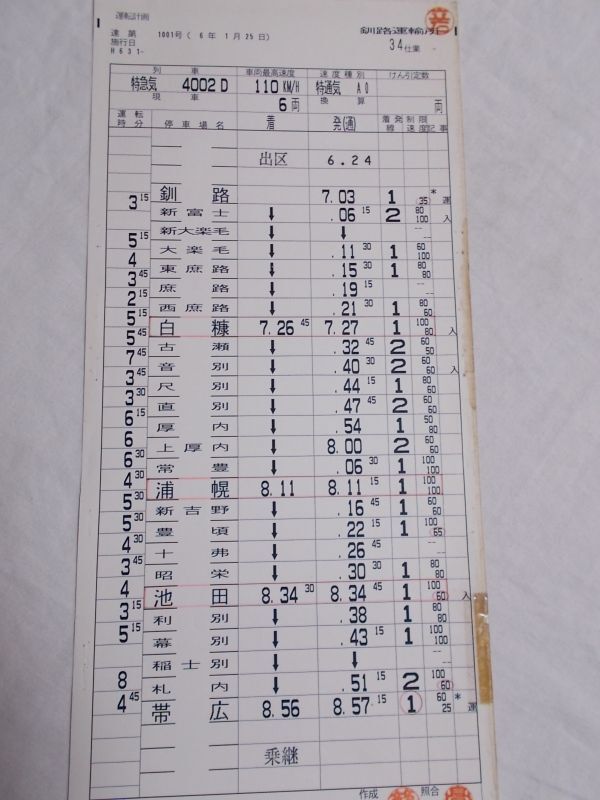 運転計画
速第 1001号( 6年 1月25日) 釧路運輸所
施行日
H631- 34仕業
列車 車両最高速度 速度種別 けん引定数
特急気 4002D 110KM/H 特通気 A0
現車 6両 換算 両
運転時分 停車場名 着 発(通) 着発線 制限速度 記事
出区 6.24
釧路 7.03 1 * 35 運
3 15
新富士 ↓ .06 15 2 80 100 入
新大楽毛 ↓ ↓ -- --
5 15
大楽毛 ↓ .11 30 1 60 100
4
東庶路 ↓ .15 30 1 80 80
3 45
庶路 ↓ .19 15 -- --
2 15
西庶路 ↓ .21 30 1 80 60
5 15
白糠 7.26 45 7.27 1 100 80 入
5 45
古瀬 ↓ .32 45 2 60 50
7 45
音別 ↓ .40 30 2 60 60 入
3 45
尺別 ↓ .44 15 1 80 60
3 30
直別 ↓ .47 45 2 60 60
6 15
厚内 ↓ .54 1 50 80
6
上厚内 ↓ 8.00 2 60 60
6 30
常豊 ↓ .06 30 1 100
4 30
浦幌 8.11 8.11 15 1 100 100
5 30
新吉野 ↓ .16 45 1 60 100
5 30
豊頃 ↓ .22 15 1 100 65
4 30
十弗 ↓ .26 45 -- --
3 45
昭栄 ↓ .30 30 1 80 80
4
池田 8.34 30 8.34 45 1 100 60 入
3 15
利別 ↓ .38 1 80 80
5 15
幕別 ↓ .43 15 1 100 100
稲士別 ↓ ↓ -- --
8
札内 ↓ .51 15 2 100 60
4 45
帯広 8.56 8.57 15 1 60 25 * 運
乗継
作成 照合